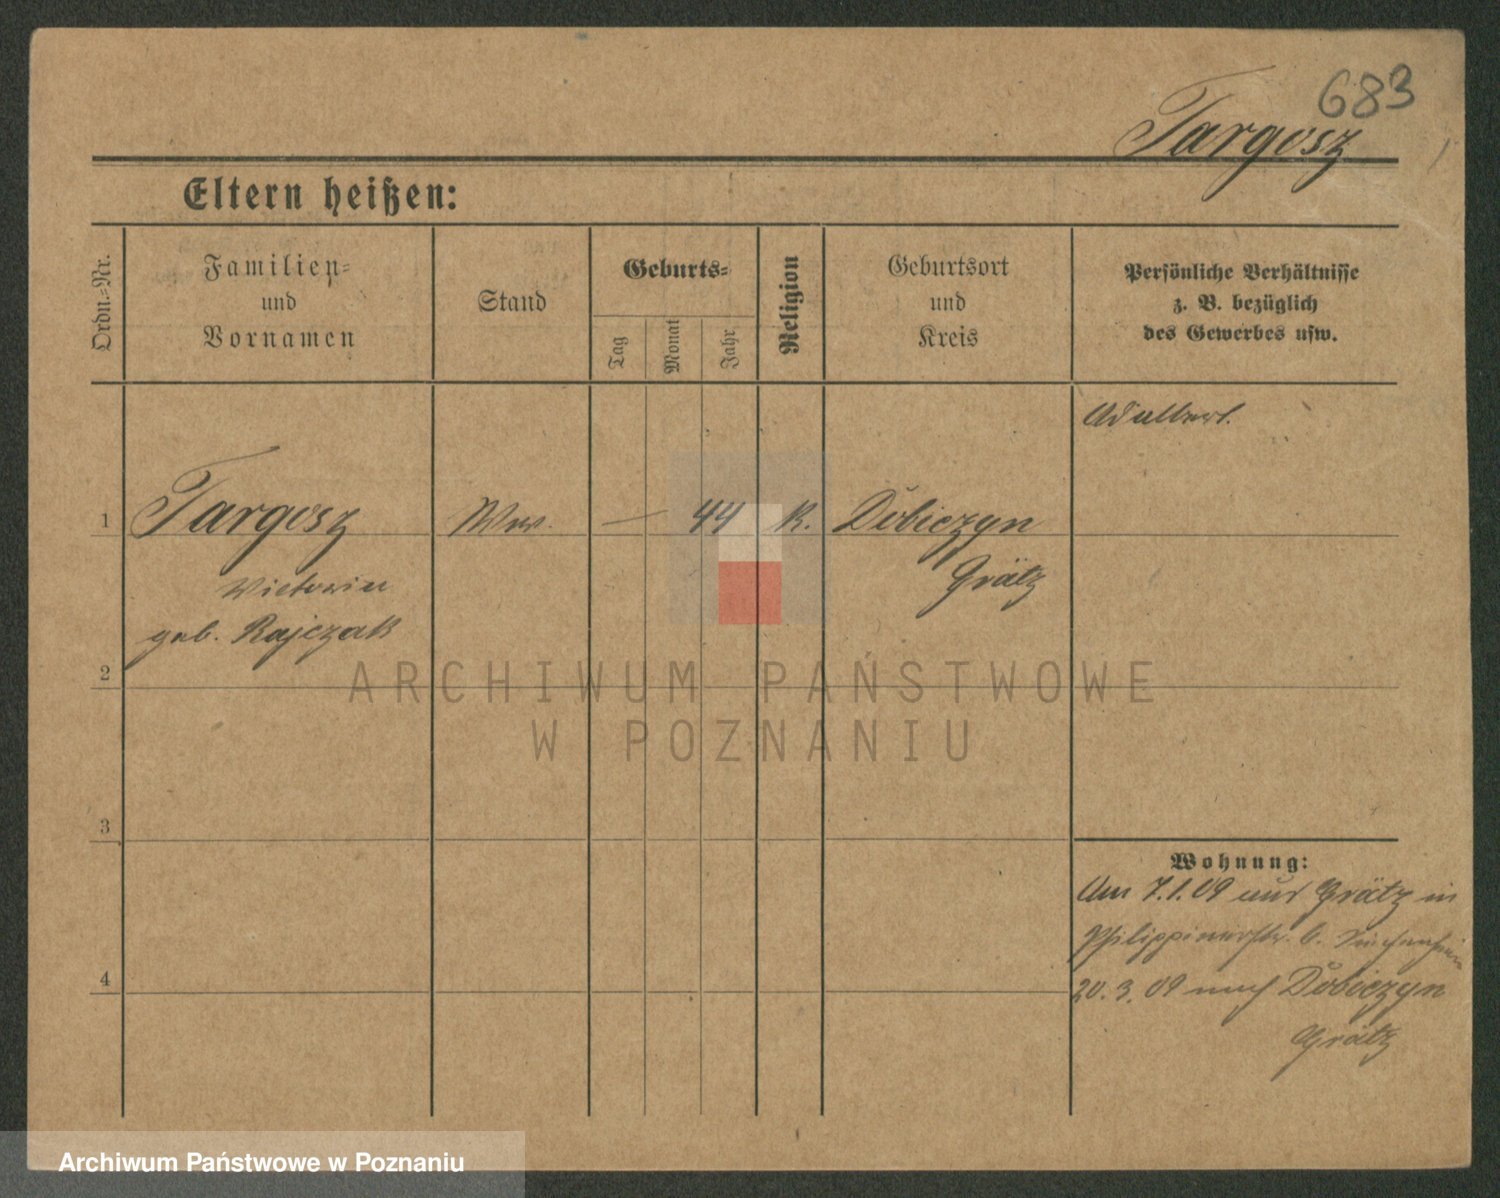 683
Targosz
Eltern heißen:
Ordn.-Nr.
Familien-
und
Vornamen
Stand
Geburts-
Tag
Monat
Jahr
Religion
Geburtsort
und
Kreis
Persönliche Verhältnisse
z. B. bezüglich
des Gewerbes usw.
Adalbert.
1
Targosz
Ww.
— 44
K.
Dobiczyn
Grätz
Victoria
geb. Rajczak
2
3
4
Wohnung:
Am 7.1.09 aus Grätz in
Philippinerstr. b.
20.3.09 nach Dobiczyn
Grätz
ARCHIWUM PAŃSTWOWE
W POZNANIU
Archiwum Państwowe w Poznaniu